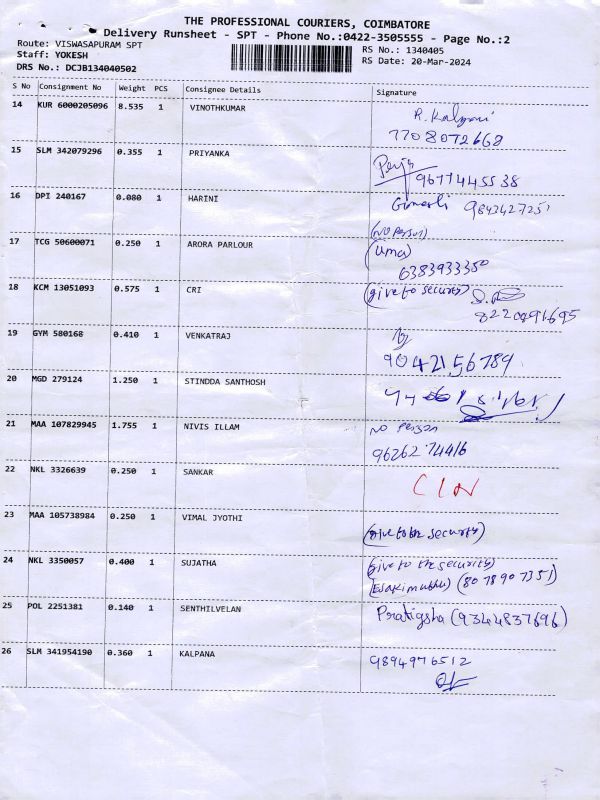 THE PROFESSIONAL COURIERS, COIMBATORE
Delivery Runsheet - SPT - Phone No.:0422-3505555 - Page No.:2
Route: VISWASAPURAM SPT
RS No.: 1340405
Staff: YOKESH
RS Date: 20-Mar-2024
DRS No.: DCJB134040502
S No Consignment No Weight PCS Consignee Details Signature
14 KUR 6000205096 8.535 1 VINOTHKUMAR
R. Kalyani
7708072668
15 SLM 342079296 0.355 1 PRIYANKA
9677445538
16 DPI 240167 0.080 1 HARINI
9843427251
(no person)
17 TCG 50600071 0.250 1 ARORA PARLOUR
(uma)
6383933350
18 KCM 13051093 0.575 1 CRI
(give to security)
8220891695
19 GYM 580168 0.410 1 VENKATRAJ
9042156789
20 MGD 279124 1.250 1 STINDDA SANTHOSH
21 MAA 107829945 1.755 1 NIVIS ILLAM
no person
9626274416
22 NKL 3326639 0.250 1 SANKAR
CIN
23 MAA 105738984 0.250 1 VIMAL JYOTHI
(give to the security)
24 NKL 3350057 0.400 1 SUJATHA
(give to the security
(Esakimuthu) (8078907351)
25 POL 2251381 0.140 1 SENTHILVELAN
Pratigsha (9344837696)
26 SLM 341954190 0.360 1 KALPANA
9894976512